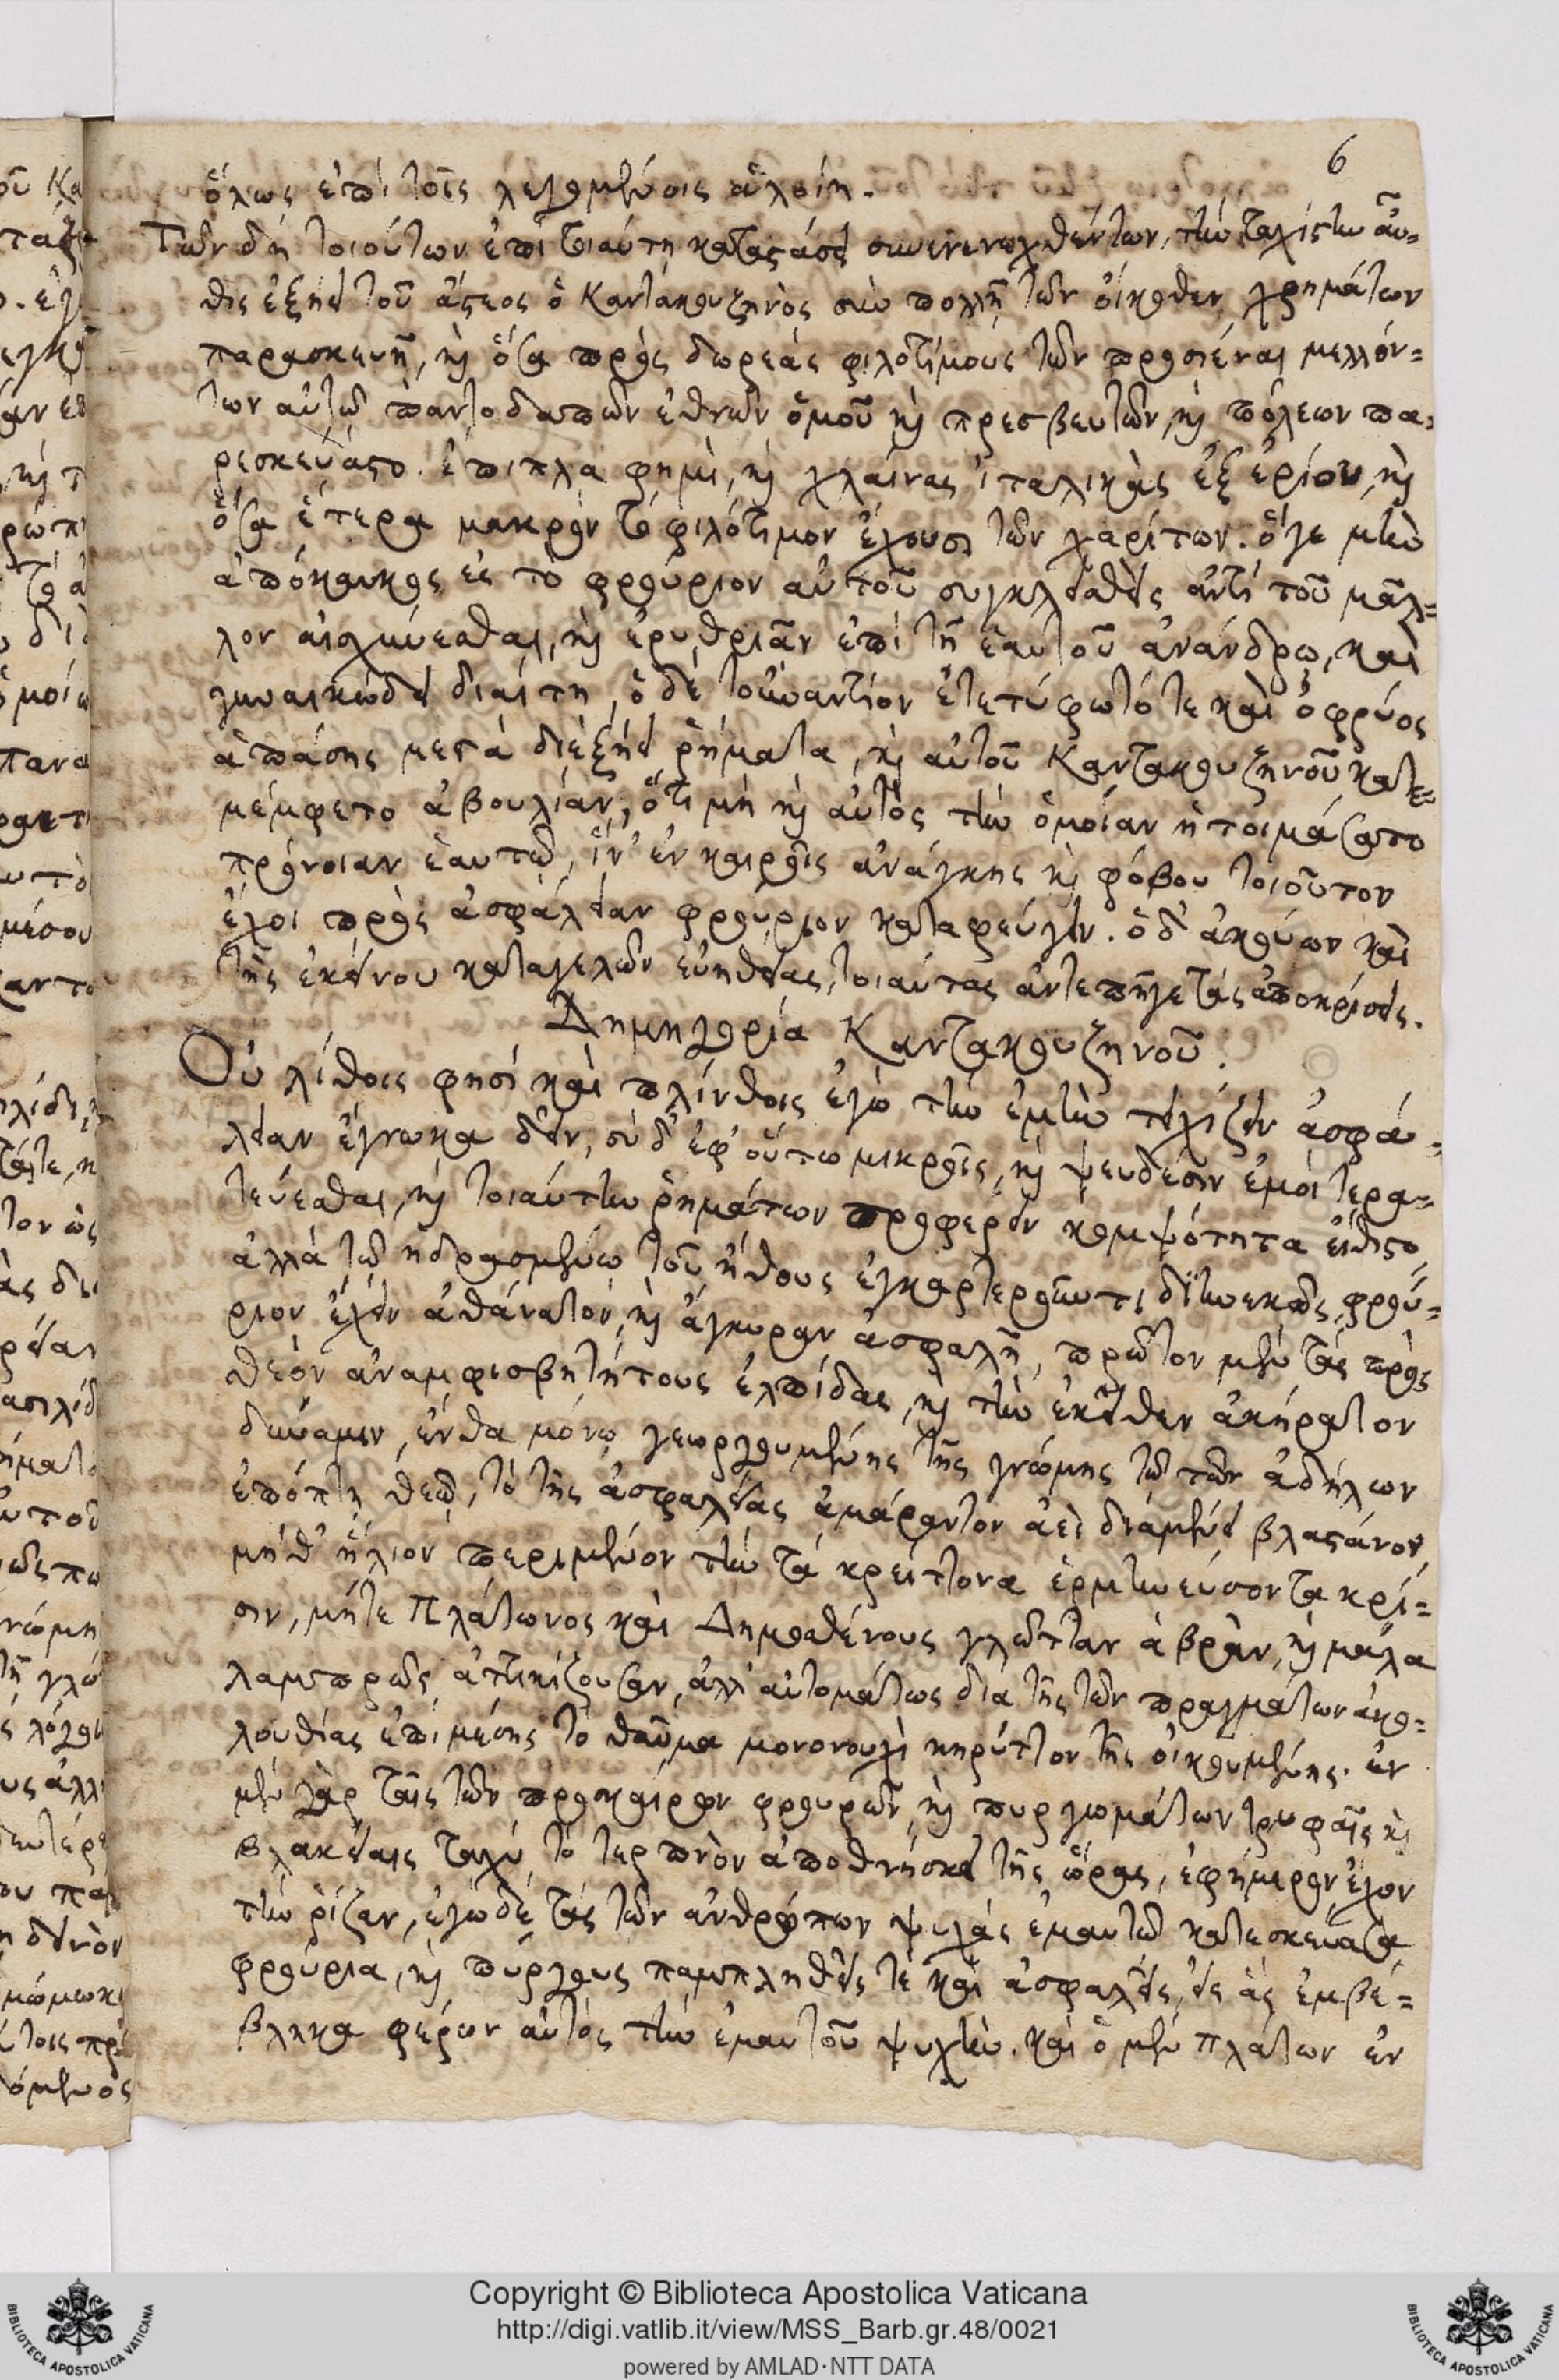 6
ὅλως ἐπὶ τοῖς λεγομένοις ἁλοίη.
Τῶν δὴ τοιούτων ἐπὶ τοιαύτῃ καταστάσει συνενεχθέντων, τὴν ταχίστην αὖ=
θις ἐξῄει τοῦ ἄστεος ὁ Καντακουζηνὸς σὺν πολλῇ τῶν οἴκοθεν χρημάτων
παρασκευῇ, καὶ ὅσα πρὸς δωρεὰς φιλοτίμους τῶν προσιέναι μελλόν=
των αὐτῷ παντοδαπῶν ἐθνῶν ὁμοῦ καὶ πρεσβευτῶν, καὶ πόλεων πα=
ρεσκεύαστο. ἔπιπλά φημι, καὶ χλαίνας ἰταλικὰς ἐξ ἐρίου, καὶ
ὅσα ἕτερα μακρὰν τὸ φιλότιμον ἔχουσι τῶν χαρίτων. ὅγε μὴν
ἀπόκαυκος ἐς τὸ φρούριον αὐτοῦ συγκλεισθεὶς ἀντὶ τοῦ μᾶλ=
λον αἰσχύνεσθαι, καὶ ἐρυθριᾶν ἐπὶ τῇ ἑαυτοῦ ἀνάνδρῳ, καὶ
γυναικώδει διαίτῃ, ὁ δὲ τοὐναντίον ἐτετύφωτό τε καὶ ὀφρύος
ἁπάσης μετὰ διεξῄει ῥήματα, καὶ αὐτοῦ Καντακουζηνοῦ κατε=
μέμφετο ἀβουλίαν, ὅτι μὴ καὶ αὐτὸς τὴν ὁμοίαν ἡτοιμάσατο
πρόνοιαν ἑαυτῷ, ἵν' ἐν καιροῖς ἀνάγκης καὶ φόβου τοιοῦτον
ἔχοι πρὸς ἀσφάλειαν φρούριον καταφεύγειν. ὁ δ' ἀκούων καὶ
τῆς ἐκείνου καταγελῶν εὐηθείας, τοιαύτας ἀντεπῆγε τὰς ἀποκρίσεις.
Δημηγορία Καντακουζηνοῦ.
Οὐ λίθοις φησὶ καὶ πλίνθοις ἐγὼ τὴν ἐμὴν τειχίζειν ἀσφά=
λειαν ἔγνωκα δεῖν, οὐδ' ἐφ' οὕτω μικροῖς, καὶ ψευδέσιν ἐμοὶ τερα=
τεύεσθαι, καὶ τοιαύτην ῥημάτων προφέρειν κομψότητα εἴθιστο,
ἀλλὰ τῷ ἡδρασμένῳ τοῦ ἤθους ἐγκαρτεροῦντι διηνεκῶς, φρού=
ριον ἔχειν ἀθάνατον, καὶ ἄγκυραν ἀσφαλῆ, πρῶτον μὲν τὰς πρὸς
θεὸν ἀναμφισβητήτους ἐλπίδας, καὶ τὴν ἐκεῖθεν ἀκήρατον
δύναμιν, ἔνθα μόνῳ γεωργουμένης τῆς γνώμης τῷ τῶν ἀδήλων
ἐπόπτῃ θεῷ, τὸ τῆς ἀσφαλείας ἀμάραντον ἀεὶ διαμένει βλαστάνον,
μήθ' ἥλιον περιμένον τὴν τὰ κρείττονα ἑρμηνεύσοντα κρί=
σιν, μήτε Πλάτωνος καὶ Δημοσθένους γλῶτταν ἁβρὰν, καὶ μάλα
λαμπρῶς ἀττικίζουσαν, ἀλλ' αὐτομάτως διὰ τῆς τῶν πραγμάτων ἀκο=
λουθίας ἐπὶ μέσης τὸ θαῦμα μονονουχὶ κηρύττον τῆς οἰκουμένης. ἐν
μὲν γὰρ ταῖς τῶν προσκαίρων φρουρῶν, καὶ πυργωμάτων τρυφαῖς καὶ
βλακείαις ταχὺ τὸ τερπνὸν ἀποθνήσκει τῆς ὥρας, ἐφήμερον ἔχον
τὴν ῥίζαν, ἐγὼ δὲ τὰς τῶν ἀνθρώπων ψυχὰς ἐμαυτῷ κατεσκεύασα
φρούρια, καὶ πύργους παμπληθεῖς τε καὶ ἀσφαλεῖς, εἰς ἃς ἐμβέ=
βληκα φέρων αὐτὸς τὴν ἐμαυτοῦ ψυχήν. καὶ ὁ μὲν πλάτων ἐν
Copyright © Biblioteca Apostolica Vaticana
http://digi.vatlib.it/view/MSS_Barb.gr.48/0021
powered by AMLAD·NTT DATA
BIBLIOTECA APOSTOLICA VATICANA
BIBLIOTECA APOSTOLICA VATICANA